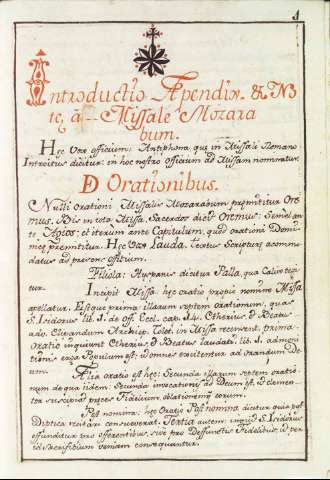 1
Introductio Apendix & No
te, â -- Missale Mozara
bum.
Hęc Vox officium: Antiphona, que in Missali Romano
Introitus dicitur: in hoc nostro officium ad Missam nominatur.
D Orationibus.
Nulli orationi Missalis Mozarabum pręmittitur Ore
mus. Bis in tota Missa, Sacerdos dicit Oremus: Semel an
te Agios; et iterum ante Capitulum, quod orationi Domi
nicę pręmittitur. Hęc Vox Lauda,
datus ad presens officium.
Filiola: Hyspanis dicitur Palla, qua Calix tegi
tur.
Incipit Missa: hęc oratio propio nomine Missa
apellatur. Estque prima illarum septem orationum, quas
S. Isidorus lib. 1. de off. Eccl. cap. 14. Etherius, & Beatus
adv. Elipandum Archiep. Tolet. in Missa recensent. prima
oratio inquiunt Etherius, & Beatus laudato lib. 1. admoni
tionis erga Populum est: ut omnes excitentur ad orandum De
um.
Alia oratio est hęc: Secunda illarum septem oratio
num de qua iidem. Secunda invocationis ad Deum est, ut clemen
ter suscipiat preces Fidelium, oblationemq. eorum.
Post nomina: hęc Oratio Post nomina dicitur quia post
Diptica recitari consueverat. Tertia autem inquit S. Isidorus
effunditur pro offerentibus, sive pro Deffunctis Fidelibus, ut per
id Sacrificium veniam consequantur.